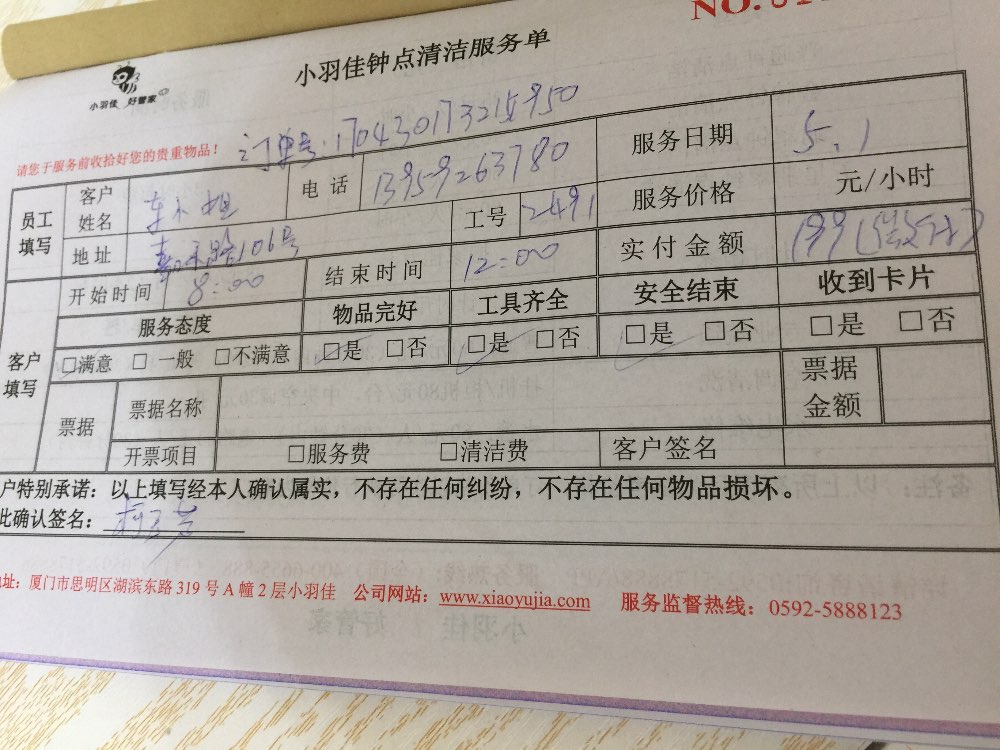 NO.
小羽佳钟点清洁服务单
小羽佳 好管家
订单号:170430173215950
请您于服务前收拾好您的贵重物品!
员工填写 客户姓名 小姐 电话 13959263780 服务日期 5.1
地址 106号 工号 2491 服务价格 元/小时
开始时间 8:00 结束时间 12:00 实付金额 199
客户填写 服务态度 物品完好 工具齐全 安全结束 收到卡片
□满意 □一般 □不满意 □是 □否 □是 □否 □是 □否 □是 □否
票据 票据名称 票据金额
开票项目 □服务费 □清洁费 客户签名
户特别承诺:以上填写经本人确认属实,不存在任何纠纷,不存在任何物品损坏。
此确认签名:
址:厦门市思明区湖滨东路319号A幢2层小羽佳 公司网站:www.xiaoyujia.com 服务监督热线:0592-5888123